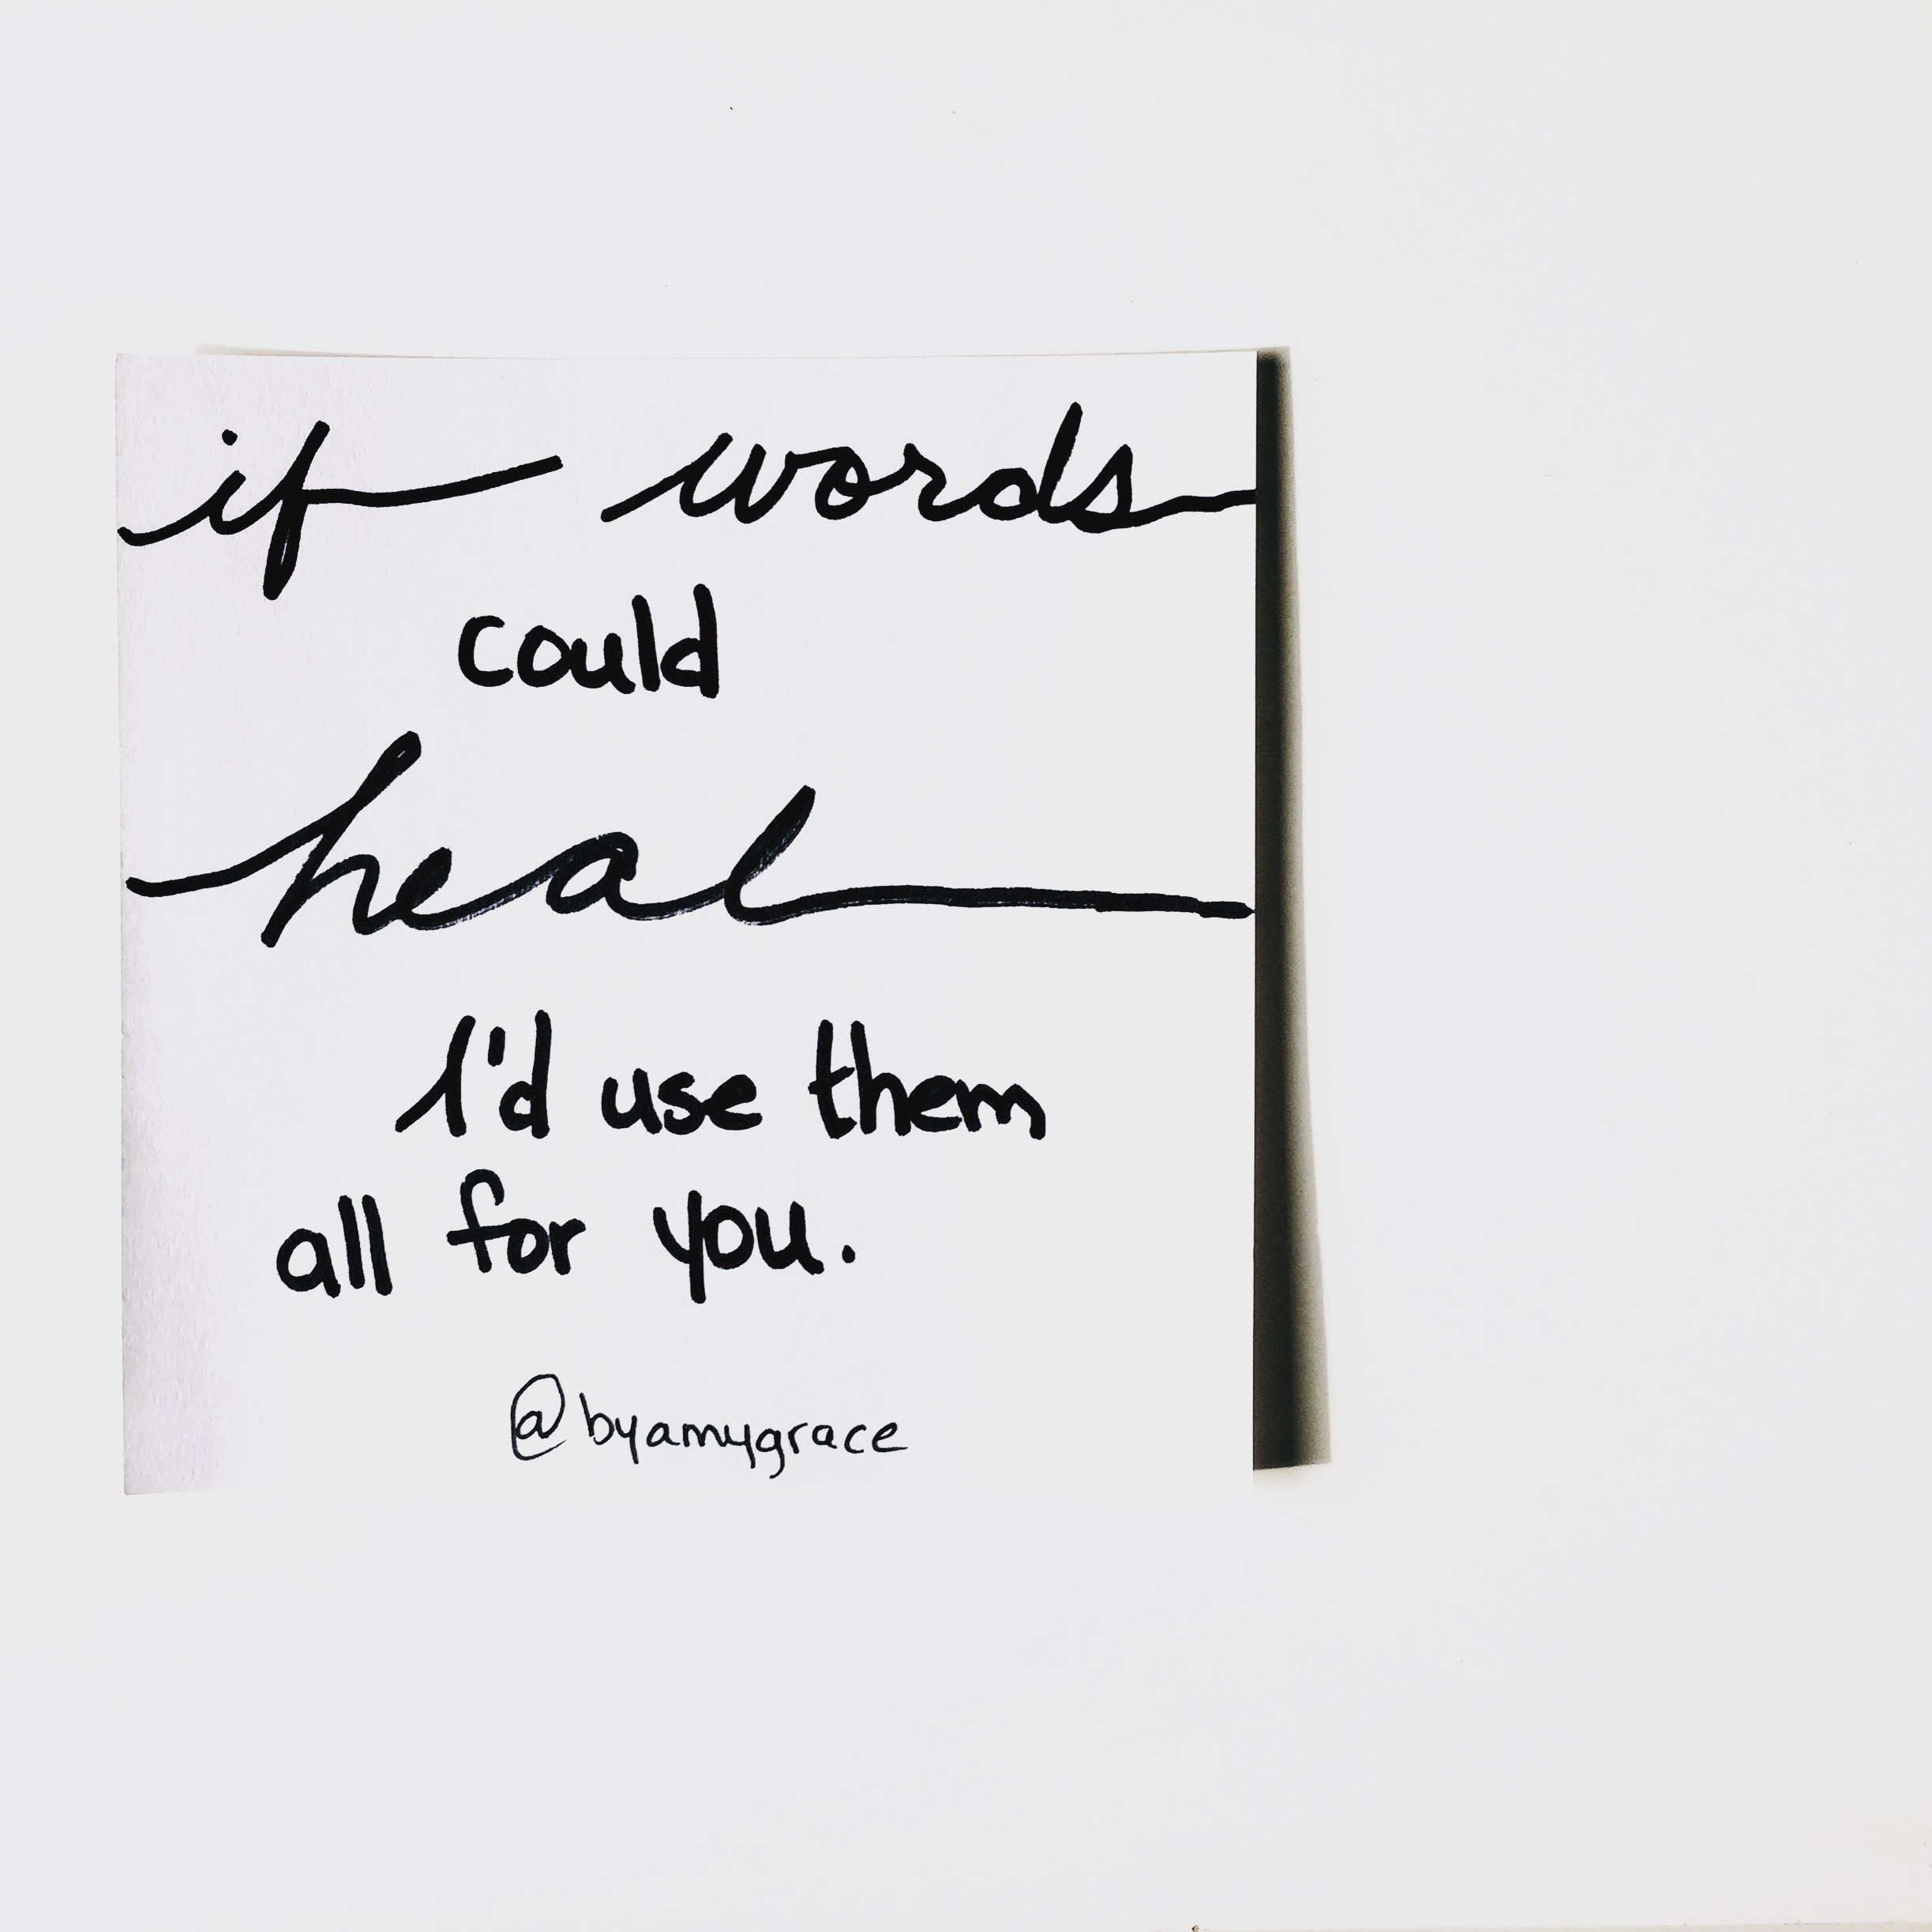 if words
could
heal
I'd use them
all for you.
@byamygrace